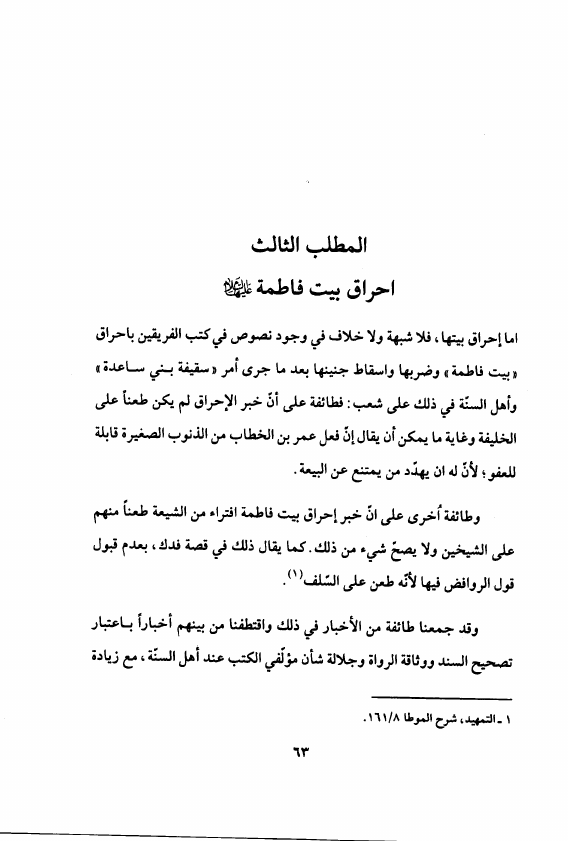 المطلب الثالث
احراق بيت فاطمة عليها السلام
اما إحراق بيتها، فلا شبهة ولا خلاف في وجود نصوص في كتب الفريقين باحراق
«بيت فاطمة» وضربها واسقاط جنينها بعد ما جرى أمر «سقيفة بني ساعدة»
وأهل السنّة في ذلك على شعب: فطائفة على أنّ خبر الإحراق لم يكن طعناً على
الخليفة وغاية ما يمكن أن يقال إنّ فعل عمر بن الخطاب من الذنوب الصغيرة قابلة
للعفو؛ لأنّ له ان يهدّد من يمتنع عن البيعة.
وطائفة أخرى على انّ خبر إحراق بيت فاطمة افتراء من الشيعة طعناً منهم
على الشيخين ولا يصحّ شيء من ذلك. كما يقال ذلك في قصة فدك، بعدم قبول
قول الروافض فيها لأنّه طعن على السّلف(١).
وقد جمعنا طائفة من الأخبار في ذلك واقتطفنا من بينهم أخباراً باعتبار
تصحيح السند ووثاقة الرواة وجلالة شأن مؤلّفي الكتب عند أهل السنّة، مع زيادة
١ - التمهيد، شرح الموطا ١٦١/٨.
٦٣